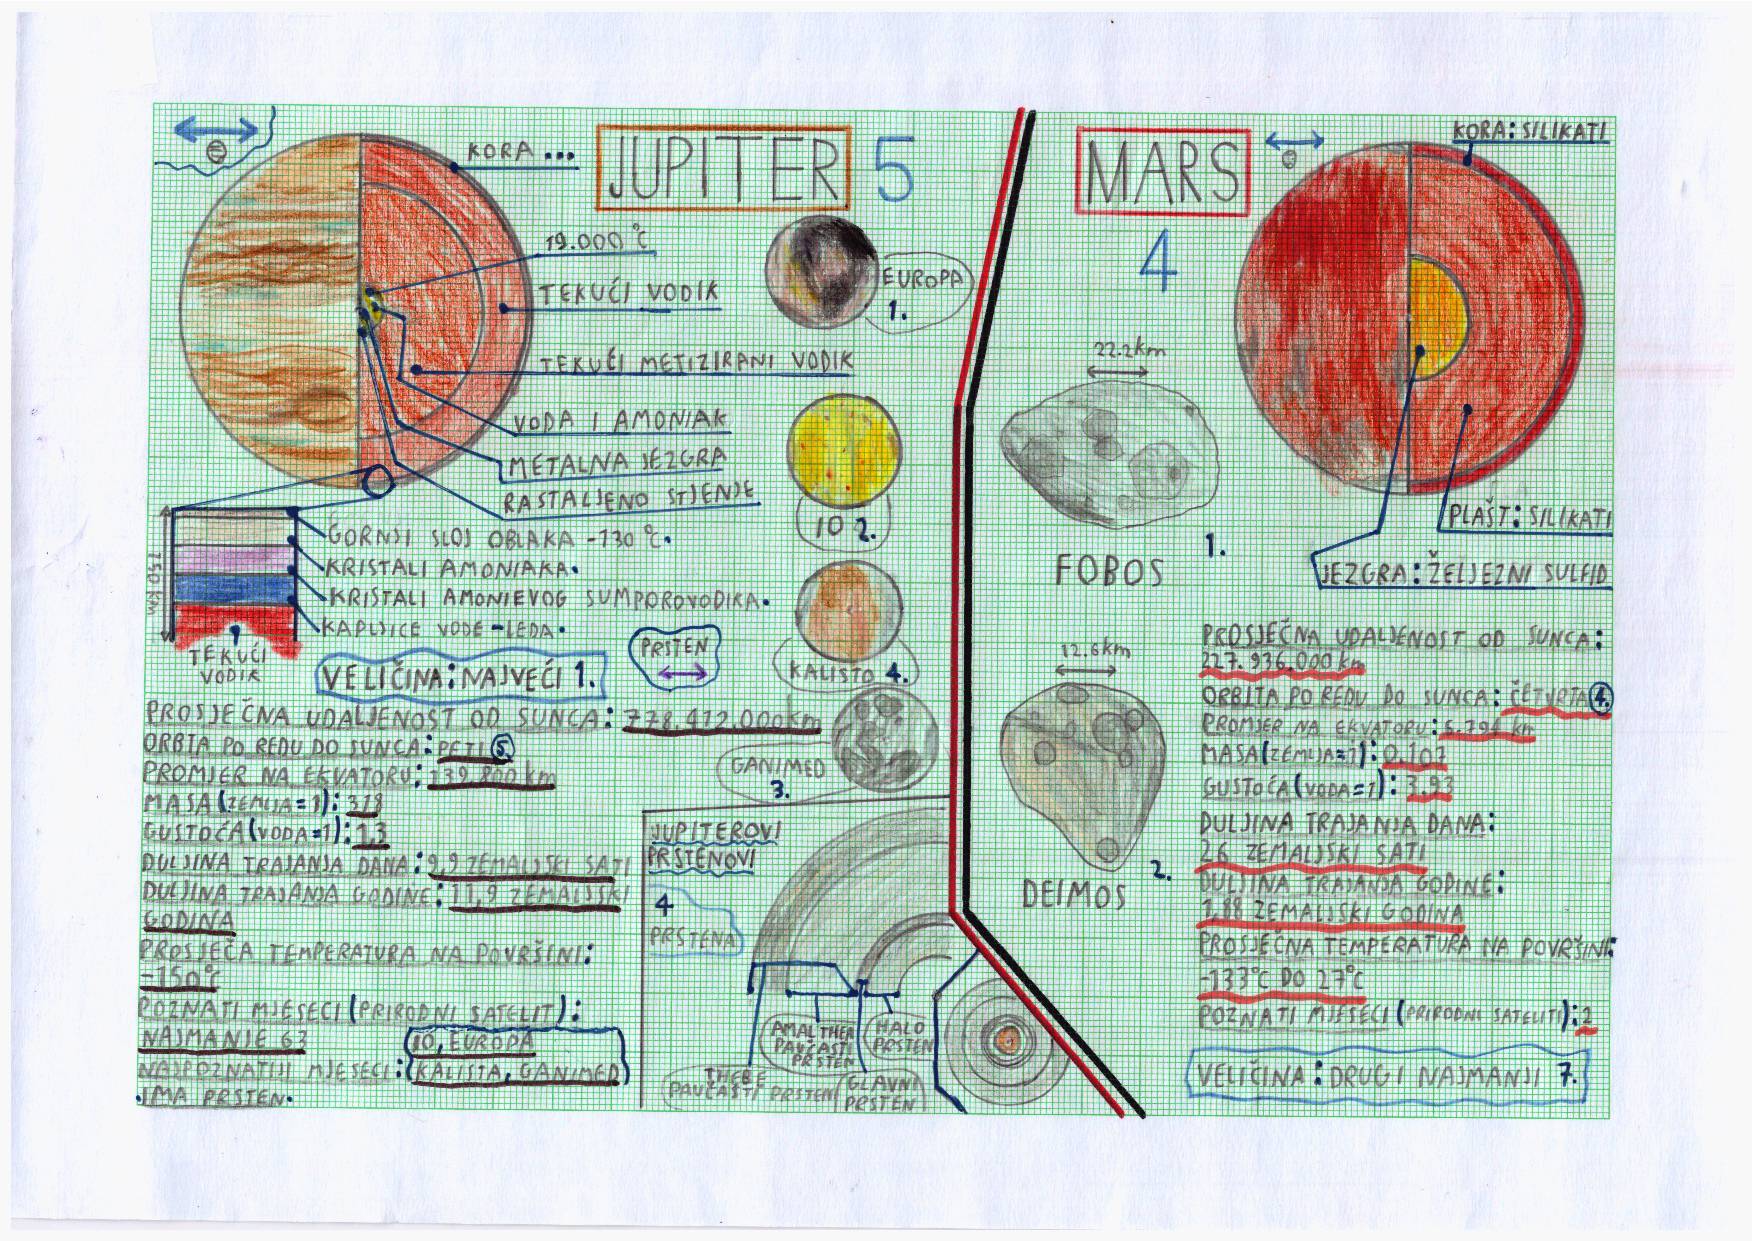 JUPITER 5
KORA ...
19.000 °C
TEKUĆI VODIK
TEKUĆI METIZIRANI VODIK
VODA I AMONIAK
METALNA JEZGRA
RASTALJENO STJENJE
GORNJI SLOJ OBLAKA -130 °C.
KRISTALI AMONIAKA.
KRISTALI AMONIEVOG SUMPOROVODIKA.
KAPLJICE VODE-LEDA.
TEKUĆI
VODIK
EUROPA
1.
IO 2.
KALISTO 4.
GANIMED
3.
PRSTEN
VELIČINA: NAJVEĆI 1.
PROSJEČNA UDALJENOST OD SUNCA: 778.412.000km
ORBITA PO REDU DO SUNCA: PETI 5
PROMJER NA EKVATORU: 139.800 km
MASA (ZEMLJA=1): 318
GUSTOĆA (VODA=1): 1,3
DULJINA TRAJANJA DANA: 9,9 ZEMALJSKI SATI
DULJINA TRAJANJA GODINE: 11,9 ZEMALJSKI
GODINA
PROSJEČA TEMPERATURA NA POVRŠINI:
-150°C
POZNATI MJESECI (PRIRODNI SATELIT):
NAJMANJE 63
NAJPOZNATIJI MJESECI: IO, EUROPA
KALISTA, GANIMED
.IMA PRSTEN.
JUPITEROVI
PRSTENOVI
4
PRSTENA
AMALTHEA
PAUČASTI
PRSTEN
HALO
PRSTEN
THEBE
PAUČASTI PRSTEN
GLAVNI
PRSTEN
MARS
4
KORA: SILIKATI
PLAŠT: SILIKATI
JEZGRA: ŽELJEZNI SULFID
22.2km
1.
FOBOS
12.6km
2.
DEIMOS
PROSJEČNA UDALJENOST OD SUNCA:
227.936.000 km
ORBITA PO REDU DO SUNCA: ČETVRTA 4.
PROMJER NA EKVATORU: 6.794 km
MASA (ZEMLJA=1): 0.107
GUSTOĆA (VODA=1): 3.93
DULJINA TRAJANJA DANA:
26 ZEMALJSKI SATI
DULJINA TRAJANJA GODINE:
1,88 ZEMALJSKI GODINA
PROSJEČNA TEMPERATURA NA POVRŠINI:
-133°C DO 27°C
POZNATI MJESECI (PRIRODNI SATELITI): 2
VELIČINA: DRUGI NAJMANJI 7.